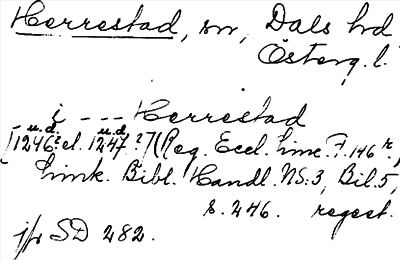 Herrestad, sn, Dals hd
Österg. l.
i --- Herrestad
u.d. u.d
[1246? el. 1247?] (Reg. Eccl. Linc. F. 146 r.,
Link. Bibl. Handl. NS: 3, Bil. 5,
s. 246. regest.
jfr SD 282.